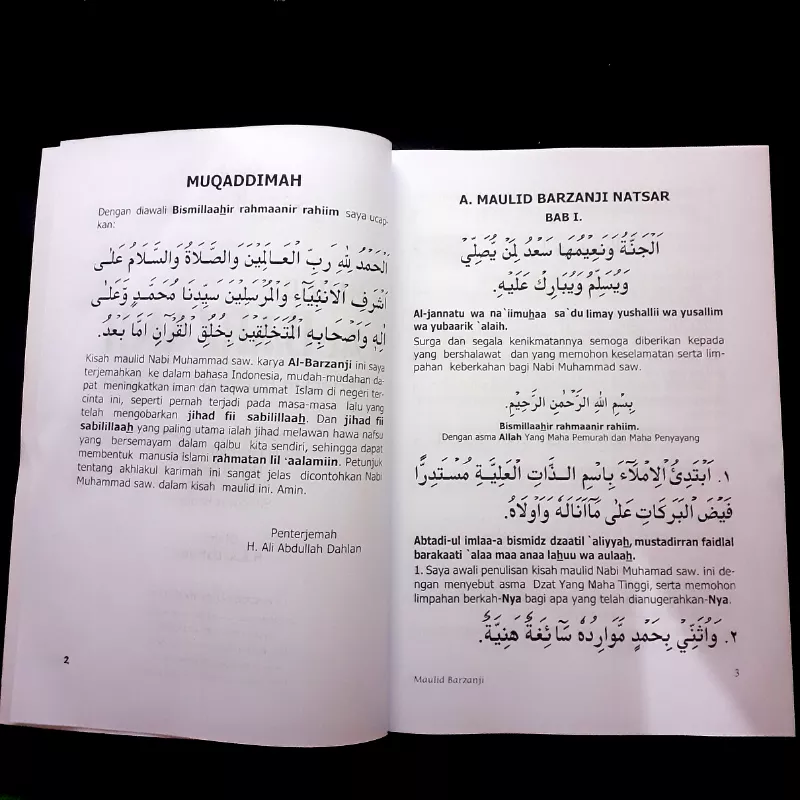 MUQADDIMAH
Dengan diawali Bismillaahir rahmaanir rahiim saya ucap-
kan:
اَلْحَمْدُ لِلّٰهِ رَبِّ الْعَالَمِيْنَ وَالصَّلَاةُ وَالسَّلَامُ عَلٰى
اَشْرَفِ الْاَنْبِيَاءِ وَالْمُرْسَلِيْنَ سَيِّدِنَا مُحَمَّدٍ وَّعَلٰى
اٰلِهٖ وَاَصْحَابِهِ الْمُتَخَلِّقِيْنَ بِخُلُقِ الْقُرْآنِ اَمَّا بَعْدُ.
Kisah maulid Nabi Muhammad saw. karya Al-Barzanji ini saya
terjemahkan ke dalam bahasa Indonesia, mudah-mudahan da-
pat meningkatkan iman dan taqwa ummat Islam di negeri ter-
cinta ini, seperti pernah terjadi pada masa-masa lalu yang
telah mengobarkan jihad fii sabilillaah. Dan jihad fii
sabilillaah yang paling utama ialah jihad melawan hawa nafsu
yang bersemayam dalam qalbu kita sendiri, sehingga dapat
membentuk manusia Islami rahmatan lil `aalamiin. Petunjuk
tentang akhlakul karimah ini sangat jelas dicontohkan Nabi
Muhammad saw. dalam kisah maulid ini. Amin.
Penterjemah
H. Ali Abdullah Dahlan
2
A. MAULID BARZANJI NATSAR
BAB I.
اَلْجَنَّةُ وَنَعِيْمُهَا سَعْدٌ لِمَنْ يُّصَلِّيْ
وَيُسَلِّمُ وَيُبَارِكُ عَلَيْهِ.
Al-jannatu wa na`iimuhaa sa`du limay yushallii wa yusallim
wa yubaarik `alaih.
Surga dan segala kenikmatannya semoga diberikan kepada
yang bershalawat dan yang memohon keselamatan serta lim-
pahan keberkahan bagi Nabi Muhammad saw.
بِسْمِ اللهِ الرَّحْمٰنِ الرَّحِيْمِ.
Bismillaahir rahmaanir rahiim.
Dengan asma Allah Yang Maha Pemurah dan Maha Penyayang
١. اَبْتَدِئُ الْاِمْلَآءَ بِاسْمِ الذَّاتِ الْعَلِيَّةِ مُسْتَدِرًّا
فَيْضَ الْبَرَكَاتِ عَلٰى مَآاَنَالَهٗ وَاَوْلَاهُ.
Abtadi-ul imlaa-a bismidz dzaatil `aliyyah, mustadirran faidlal
barakaati `alaa maa anaa lahuu wa aulaah.
1. Saya awali penulisan kisah maulid Nabi Muhamad saw. ini de-
ngan menyebut asma Dzat Yang Maha Tinggi, serta memohon
limpahan berkah-Nya bagi apa yang telah dianugerahkan-Nya.
٢. وَاُثَنِّيْ بِحَمْدٍ مَّوَارِدُهٗ سَآئِغَةٌ هَنِيَّةٌ.
Maulid Barzanji
3